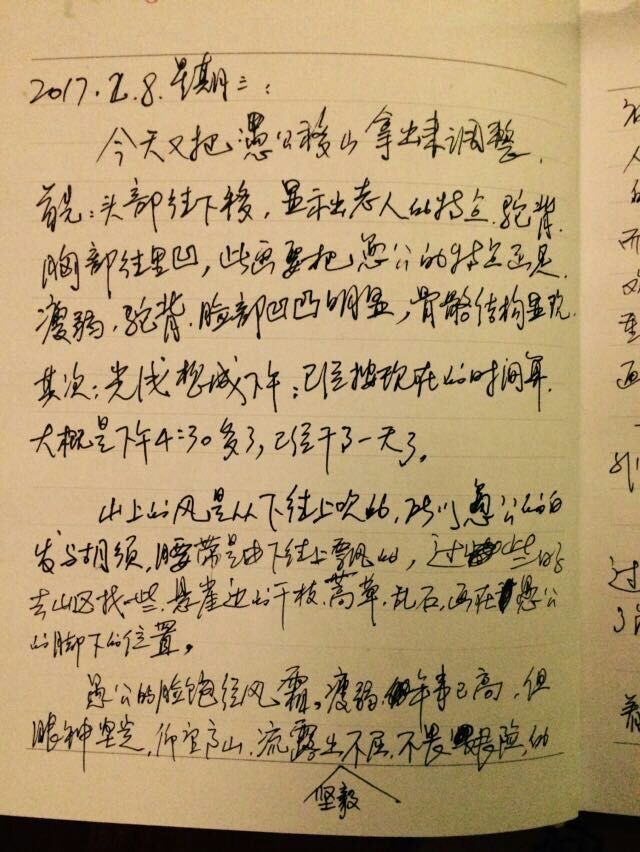 2017.2.8.星期三:
今天又把愚公移山拿出来调整,
首先:头部往下移,显示出老人的特点.驼背.
胸部往里凹,此画要把愚公的特点画足.
瘦弱,驼背.脸部凹凸明显,骨骼结构显现.
其次:光线想成下午;已经按现在的时间算.
大概是下午4:30多了,已经干了一天了。
山上的风是从下往上吹的,所以愚公的白
发与胡须,腰带是由下往上飘的,过
去山区找一些.悬崖边的干枝.蒿草.乱石,画在愚公
的脚下的位置。
愚公的脸饱经风霜。瘦弱.年事已高,但
眼神坚定,仰望高山,流露出不屈,不畏艰险,的
坚毅
过